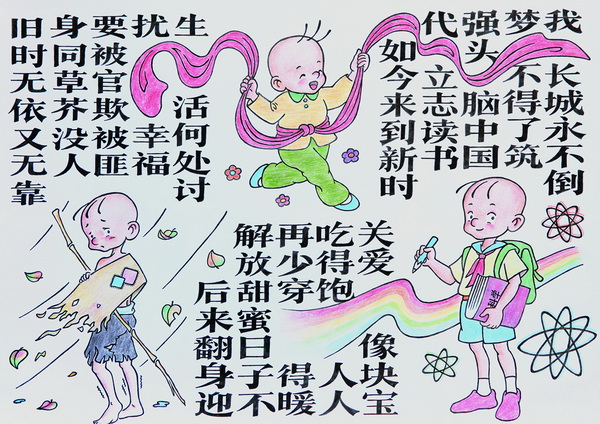 旧时无依又无靠
身同草芥没人
要被官欺被匪
扰幸福
生活何处讨
后来翻身迎
解放甜蜜日子不
再少穿得暖
吃得饱人人
关爱像块宝
如今来到新时
代立志读书
强头脑中国
梦不得了筑
我长城永不倒